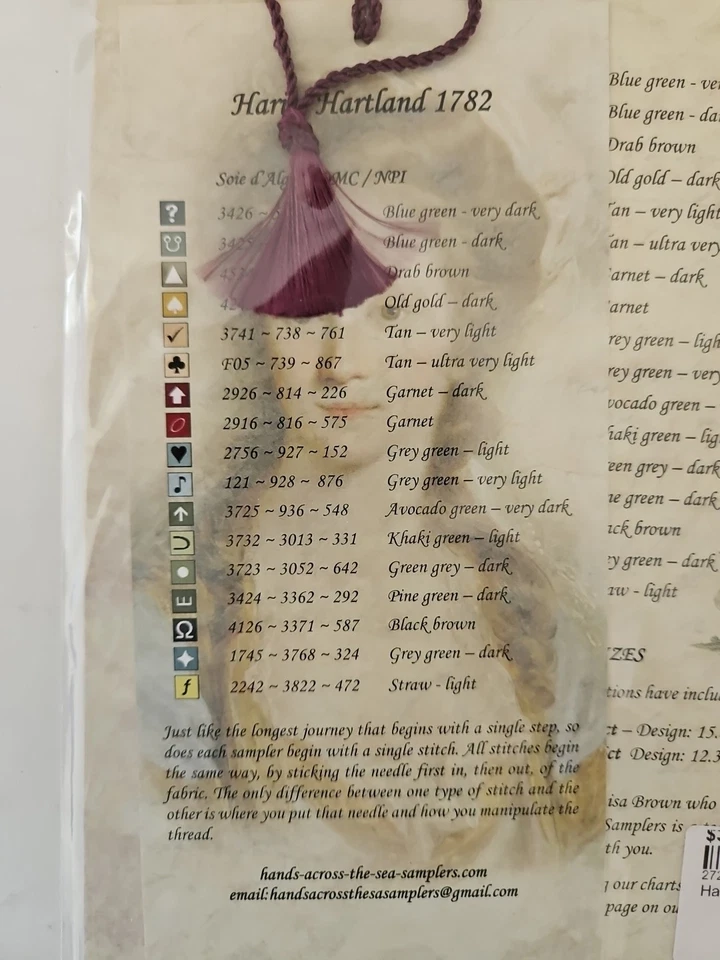 Hartland 1782
Soie d'Al MC / NPI
3426 ~ Blue green - very dark
Blue green - dark
Drab brown
Old gold – dark
3741 ~ 738 ~ 761 Tan – very light
F05 ~ 739 ~ 867 Tan – ultra very light
2926 ~ 814 ~ 226 Garnet – dark
2916 ~ 816 ~ 575 Garnet
2756 ~ 927 ~ 152 Grey green – light
121 ~ 928 ~ 876 Grey green – very light
3725 ~ 936 ~ 548 Avocado green – very dark
3732 ~ 3013 ~ 331 Khaki green – light
3723 ~ 3052 ~ 642 Green grey – dark
3424 ~ 3362 ~ 292 Pine green – dark
4126 ~ 3371 ~ 587 Black brown
1745 ~ 3768 ~ 324 Grey green – dark
2242 ~ 3822 ~ 472 Straw - light
Just like the longest journey that begins with a single step, so
does each sampler begin with a single stitch. All stitches begin
the same way, by sticking the needle first in, then out, of the
fabric. The only difference between one type of stitch and the
other is where you put that needle and how you manipulate the
thread.
hands-across-the-sea-samplers.com
email:handsacrossthesasamplers@gmail.com
Blue green - ve
Blue green - da
Drab brown
Old gold – dark
Tan – very light
an – ultra very
arnet – dark
arnet
rey green – ligh
rey green – very
vocado green –
haki green – lig
een grey – dark
ne green – dark
ack brown
ey green – dark
aw - light
ZES
tions have inclu
ct – Design: 15.
ct Design: 12.3
isa Brown who
Samplers is
th you.
our charts
page on ou
272
Ha